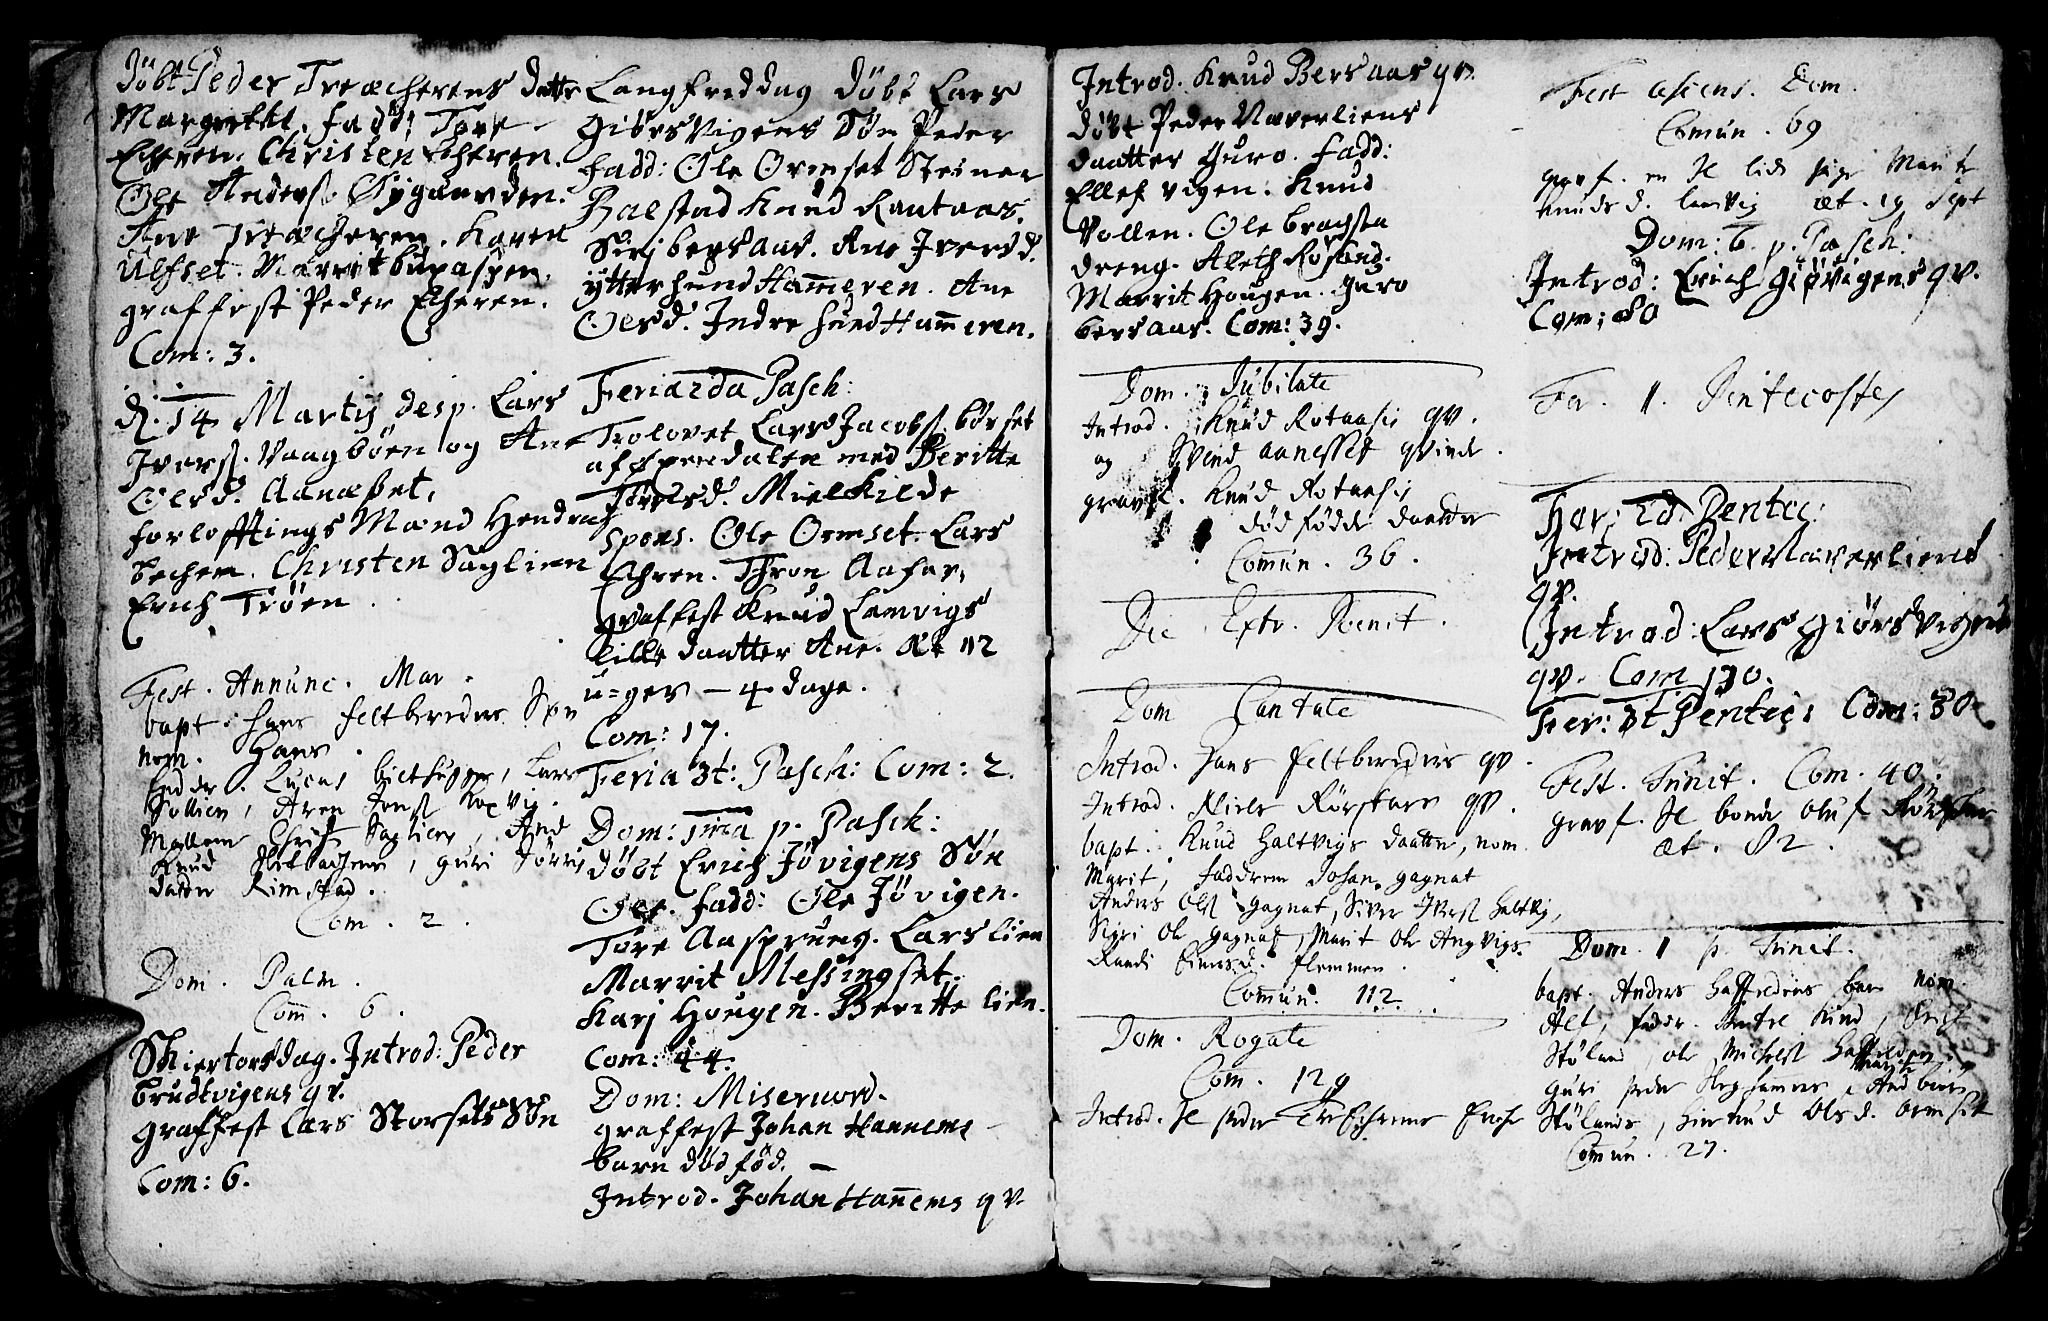 Döbt Peder Træcherens datter
Margrethe, fadd: Tore
Echeren. Christen Echeren.
Ole Anders. Øygaarden.
Ane Træcheren. Karen
Ulfset. Marrit buraspen.
graffest Peder Echeren.
Com: 3.
d. 14 Martij desp. Lars
Ivers. Vaagböen og Ane
Olsd. Aanæset,
forlofftings Mænd Hendrich
bechen. Christen Saglien
Erich Tröen.
Fest. Annunc. Mar.
bapt. Hans feltberedes Søn
nom. Hans.
Lucas
Sollien, Aren
Christ Saglien,
Knud guri
datter Rimstad.
Com. 2.
Dom. Palm.
Com. 6.
Skiertorsdag. Introd: Peder
brudtvigens qv.
graffest Lars Storsets Søn
Com: 6.
Langfreddag Döbt Lars
Giörsvigens Søn Peder
fadd: Ole Ormset Steiner
Balstad Knud Rantaas.
Sirj bersaas. Ane Iversd.
ytterhund Hameren. Ane
Olsd. Indre hund Hammeren.
Feria 2da Pasch:
Trolovet Lars Jacobs. börset
af med Beritte
Toresd. Mielkilde
Spons. Ole Ormset. Lars
Ehren. Thron Aafar,
graffest Knud Lamvigs
lille daatter Ane. Æt 12
u=ger – 4 dage.
Com: 17.
Feria 3t: Pasch: Com: 2.
Dom: 1ma p. Pasch:
döbt Erich Jövigens Søn
Ole. fadd: Ole Jövigen.
Töre Aasprung. Lars lien
Marrit Messingset.
Karj Hougen. Beritte lien.
Com: 44.
Dom: Misericord.
graffest Johan Hannems
barn död fød. –
Introd. Johan Hanems qv.
Introd. Knud Bersaas qv.
döbt Peder Naverliens
daatter Guro. fadd:
Ellef vigen. Knud
Vollen. Ole brachsta
dreng. Aleth Rösand.
Marrit Hougen. Guro
bersaas. Com: 39.
Dom. Jubilate
Introd. Knud Rotaasis qv.
og Svend aanesset qvinde.
gravf. Knud Rotaasis
dödfödde daatter
Comun. 36.
Die Extr. Poenit.
Dom Cantate
Introd. Hans feltberedes qv.
Introd. Niels Rörskars qv.
bapt. Knud Haltvigs daatter, nom.
Marit, Johan gagnat
Anders Ols gagnat, Siver Haltvig,
Siri Ole gagnat, Marit Ole Angvigs.
Randi flemmen.
Comun. 112.
Dom. Rogate
Com. 129
Introd. Sl peder
Fest ascens. Dom.
Comun. 69
gravf. en lide pige Marite
Knudsd. lamvig æt. 19 Sept
Dom: 6. p. Pasch:
Introd: Erich Giövigens qv.
Com: 80
Fer. 1. Pentecostes
Fer: 2d. Pentec:
Introd: Peder Naverliens
qv.
Introd: Lars Giörsvigens
qv. Com 130.
Fer: 3t Pentec: Com: 30
Fest. Trinit. Com. 40.
gravf. bonde Oluf
æt. 82.
Dom. 1 p. Trinit.
bapt. Anders barn nom.
Erich
Stöland, ole Michels
Guri peder
Stölands, Olsd. Ormset
Comun. 27.